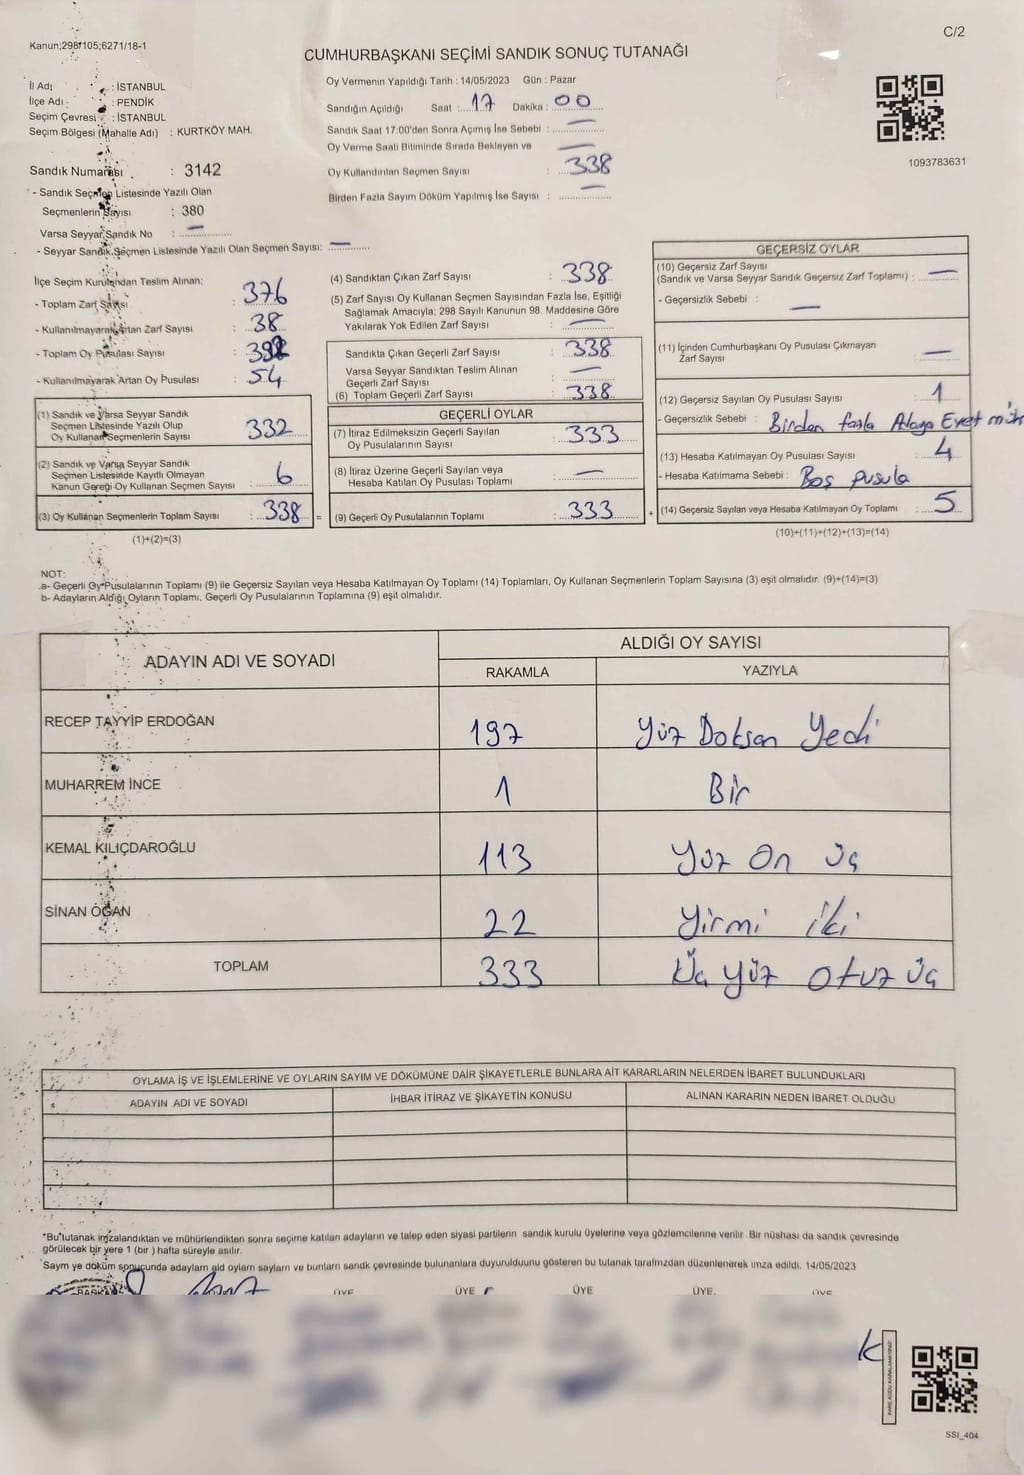 C/2
Kanun;298;105;6271/18-1
CUMHURBAŞKANI SEÇİMİ SANDIK SONUÇ TUTANAĞI
İl Adı : İSTANBUL
İlçe Adı : PENDİK
Seçim Çevresi : İSTANBUL
Seçim Bölgesi (Mahalle Adı) : KURTKÖY MAH.
Sandık Numarası : 3142
- Sandık Seçmen Listesinde Yazılı Olan
Seçmenlerin Sayısı : 380
Varsa Seyyar Sandık No : —
- Seyyar Sandık Seçmen Listesinde Yazılı Olan Seçmen Sayısı: —
Oy Vermenin Yapıldığı Tarih : 14/05/2023 Gün : Pazar
Sandığın Açıldığı Saat : 17 Dakika : 00
Sandık Saat 17:00'den Sonra Açımış İse Sebebi : —
Oy Verme Saati Bitiminde Sırada Bekleyen ve —
Oy Kullandırılan Seçmen Sayısı : 338
Birden Fazla Sayım Döküm Yapılmış İse Sayısı : —
1093783631
İlçe Seçim Kurulundan Teslim Alınan;
- Toplam Zarf Sayısı : 376
- Kullanılmayarak Artan Zarf Sayısı : 38
- Toplam Oy Pusulası Sayısı :
- Kullanılmayarak Artan Oy Pusulası : 54
(1) Sandık ve Varsa Seyyar Sandık
Seçmen Listesinde Yazılı Olup
Oy Kullanan Seçmenlerin Sayısı : 332
(2) Sandık ve Varsa Seyyar Sandık
Seçmen Listesinde Kayıtlı Olmayan
Kanun Gereği Oy Kullanan Seçmen Sayısı : 6
(3) Oy Kullanan Seçmenlerin Toplam Sayısı : 338 =
(1)+(2)=(3)
(4) Sandıktan Çıkan Zarf Sayısı : 338
(5) Zarf Sayısı Oy Kullanan Seçmen Sayısından Fazla İse, Eşitliği
Sağlamak Amacıyla; 298 Sayılı Kanunun 98. Maddesine Göre
Yakılarak Yok Edilen Zarf Sayısı : —
Sandıkta Çıkan Geçerli Zarf Sayısı : 338
Varsa Seyyar Sandıktan Teslim Alınan
Geçerli Zarf Sayısı : —
(6) Toplam Geçerli Zarf Sayısı : 338
GEÇERLİ OYLAR
(7) İtiraz Edilmeksizin Geçerli Sayılan
Oy Pusulalarının Sayısı : 333
(8) İtiraz Üzerine Geçerli Sayılan veya
Hesaba Katılan Oy Pusulası Toplamı : —
(9) Geçerli Oy Pusulalarının Toplamı : 333 +
GEÇERSİZ OYLAR
(10) Geçersiz Zarf Sayısı
(Sandık ve Varsa Seyyar Sandık Geçersiz Zarf Toplamı) : —
- Geçersizlik Sebebi : —
(11) İçinden Cumhurbaşkanı Oy Pusulası Çıkmayan
Zarf Sayısı : —
(12) Geçersiz Sayılan Oy Pusulası Sayısı : 1
- Geçersizlik Sebebi : Birden fazla Adaya Evet
(13) Hesaba Katılmayan Oy Pusulası Sayısı : 4
- Hesaba Katılmama Sebebi : Boş pusula
(14) Geçersiz Sayılan veya Hesaba Katılmayan Oy Toplamı : 5
(10)+(11)+(12)+(13)=(14)
NOT:
a- Geçerli Oy Pusulalarının Toplamı (9) ile Geçersiz Sayılan veya Hesaba Katılmayan Oy Toplamı (14) Toplamları, Oy Kullanan Seçmenlerin Toplam Sayısına (3) eşit olmalıdır. (9)+(14)=(3)
b- Adayların Aldığı Oyların Toplamı, Geçerli Oy Pusulalarının Toplamına (9) eşit olmalıdır.
ADAYIN ADI VE SOYADI
ALDIĞI OY SAYISI
RAKAMLA YAZIYLA
RECEP TAYYİP ERDOĞAN 197 Yüz Doksan Yedi
MUHARREM İNCE 1 Bir
KEMAL KILIÇDAROĞLU 113 Yüz On Üç
SİNAN OĞAN 22 Yirmi iki
TOPLAM 333 Üç yüz otuz üç
OYLAMA İŞ VE İŞLEMLERİNE VE OYLARIN SAYIM VE DÖKÜMÜNE DAİR ŞİKAYETLERLE BUNLARA AİT KARARLARIN NELERDEN İBARET BULUNDUKLARI
ADAYIN ADI VE SOYADI İHBAR İTİRAZ VE ŞİKAYETİN KONUSU ALINAN KARARIN NEDEN İBARET OLDUĞU
*Bu tutanak imzalandıktan ve mühürlendikten sonra seçime katılan adayların ve talep eden siyasi partilerin sandık kurulu üyelerine veya gözlemcilerine verilir. Bir nüshası da sandık çevresinde
görülecek bir yere 1 (bir) hafta süreyle asılır.
Sayım ye döküm sonucunda adayların ald oyların sayıları ve bunların sandk çevresinde bulunanlara duyurulduunu gösteren bu tutanak tarafmzdan düzenlenerek imza edildi. 14/05/2023
BAŞKAN ÜYE ÜYE ÜYE ÜYE. ÜYE
SSI_404